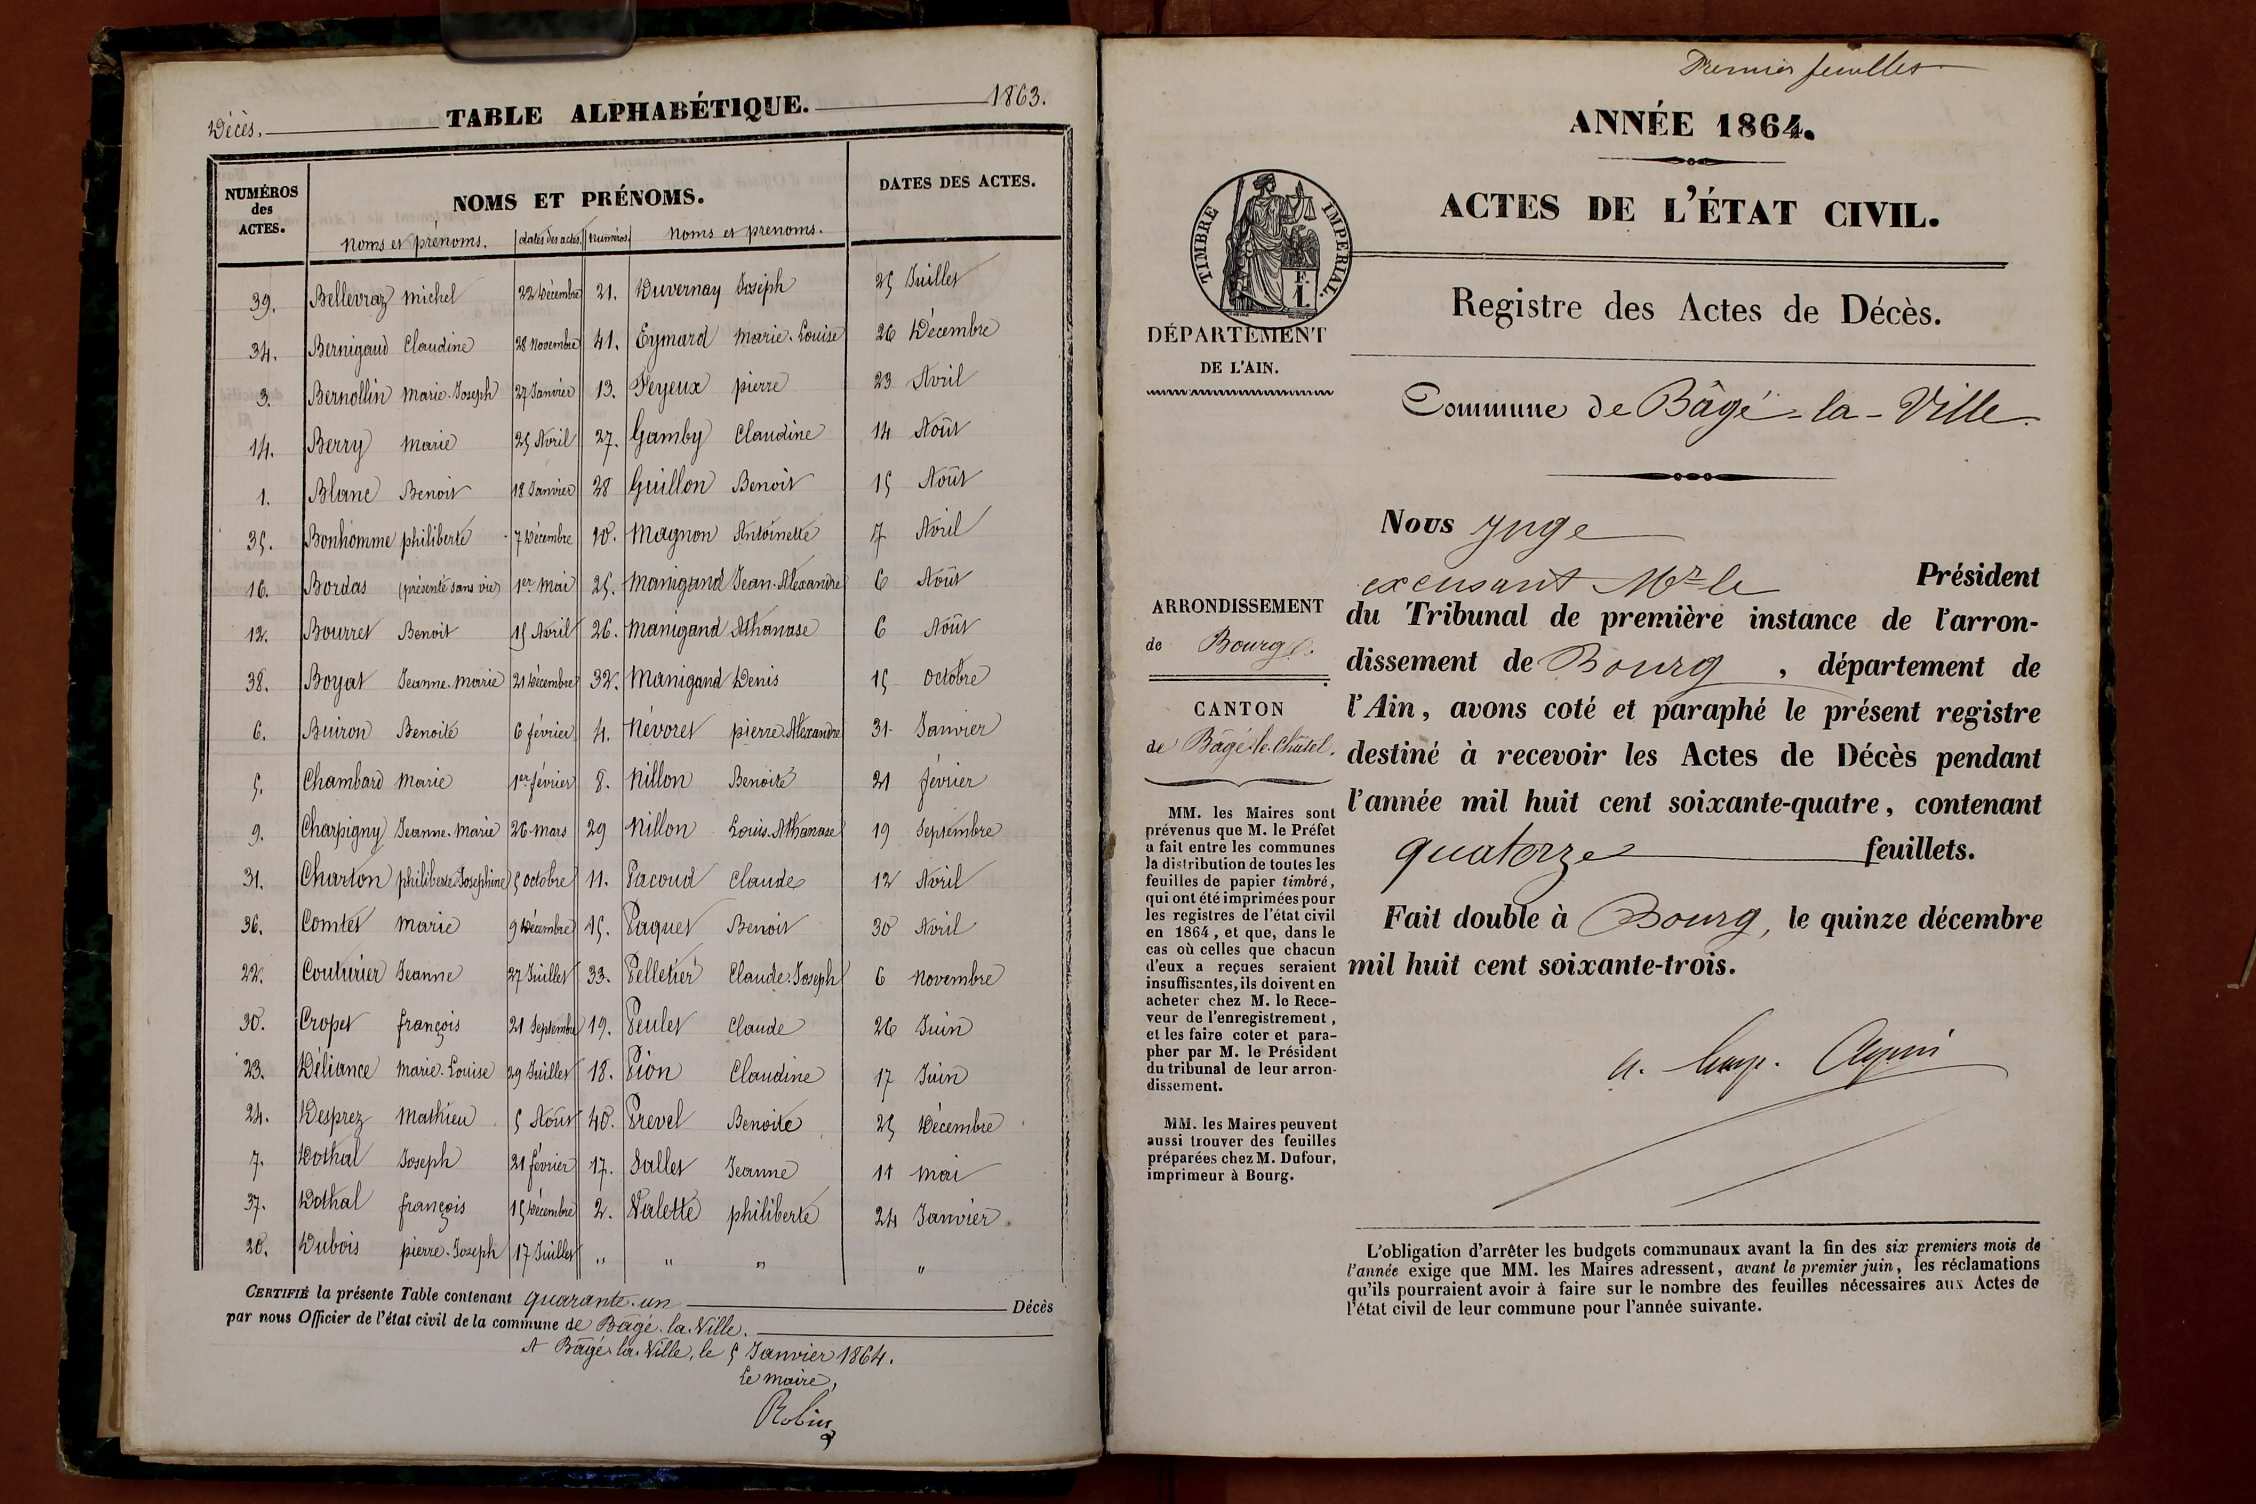 Décès. TABLE ALPHABÉTIQUE. 1863.
NUMÉROS des ACTES. NOMS ET PRÉNOMS. DATES DES ACTES.
Noms et prénoms. dates des actes. Numéros. Noms et prenoms.
39. Bellevraz Michel 22 Décembre 21. Duvernay Joseph 25 Juillet
34. Bernigaud Claudine 28 Novembre 41. Eymard Marie-Louise 26 Décembre
3. Bernollin Marie-Joseph 27 Janvier 13. Feyeux pierre 23 Avril
14. Berry Marie 25 Avril 27. Gamby Claudine 14 Août
1. Blanc Benoit 18 Janvier 28 Guillon Benoit 15 Août
35. Bonhomme philiberte 7 Décembre 10. Magnon Antoinette 7 Avril
16. Bordas (présenté sans vie) 1er Mai 25. Manigand Jean-Alexandre 6 Août
12. Bourret Benoit 15 Avril 26. Manigand Athanase 6 Août
38. Boyat Jeanne-Marie 21 Décembre 32. Manigand Denis 15 Octobre
6. Buiron Benoite 6 février 4. Névoret pierre-Alexandre 31 Janvier
5. Chambard Marie 1er février 8. Nillon Benoite 21 février
9. Charpigny Jeanne-Marie 26 Mars 29 Nillon Louis-Athanase 19 Septembre
31. Charton philiberte-Josephine 5 Octobre 11. Pacoud Claude 12 Avril
36. Comtet Marie 9 Décembre 15. Paquet Benoit 30 Avril
22. Couturier Jeanne 27 Juillet 33. Pelletier Claude-Joseph 6 Novembre
30. Cropet françois 21 Septembre 19. Peulet Claude 26 Juin
23. Déliance Marie-Louise 29 Juillet 18. Pion Claudine 17 Juin
24. Desprez Mathieu 5 Août 40. Prevel Benoite 25 Décembre
7. Dothal Joseph 21 février 17. Sallet Jeanne 11 Mai
37. Dothal françois 15 Décembre 2. Valette philiberte 24 Janvier
20. Dubois pierre-Joseph 17 Juillet " " " "
CERTIFIÉ la présente Table contenant quarante-un Décès
par nous Officier de l'état civil de la commune de Bâgé-la-Ville.
A Bâgé-la-Ville, le 5 Janvier 1864.
Le Maire,
Robin
Premier feuillet
ANNÉE 1864.
ACTES DE L'ÉTAT CIVIL.
TIMBRE IMPÉRIAL.
Registre des Actes de Décès.
DÉPARTEMENT
DE L'AIN.
Commune de Bâgé-la-Ville.
ARRONDISSEMENT
de Bourg
CANTON
de Bâgé-le-Châtel.
MM. les Maires sont
prévenus que M. le Préfet
a fait entre les communes
la distribution de toutes les
feuilles de papier timbré,
qui ont été imprimées pour
les registres de l'état civil
en 1864, et que, dans le
cas où celles que chacun
d'eux a reçues seraient
insuffisantes, ils doivent en
acheter chez M. le Rece-
veur de l'enregistrement,
et les faire coter et para-
pher par M. le Président
du tribunal de leur arron-
dissement.
MM. les Maires peuvent
aussi trouver des feuilles
préparées chez M. Dufour,
imprimeur à Bourg.
Nous Juge
excusant Mr le Président
du Tribunal de première instance de l'arron-
dissement de Bourg, département de
l'Ain, avons coté et paraphé le présent registre
destiné à recevoir les Actes de Décès pendant
l'année mil huit cent soixante-quatre, contenant
quatorze feuillets.
Fait double à Bourg, le quinze décembre
mil huit cent soixante-trois.
L'obligation d'arrêter les budgets communaux avant la fin des six premiers mois de
l'année exige que MM. les Maires adressent, avant le premier juin, les réclamations
qu'ils pourraient avoir à faire sur le nombre des feuilles nécessaires aux Actes de
l'état civil de leur commune pour l'année suivante.